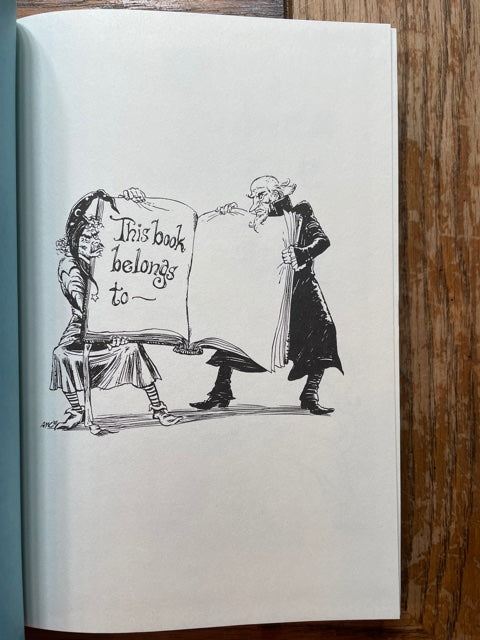 This book
belongs
to ~